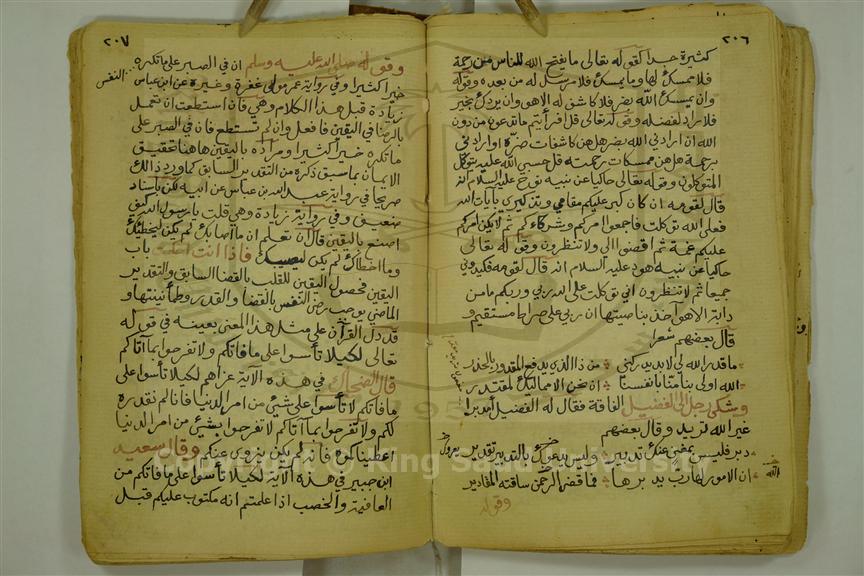 ٢٠٦
كثيرة جدا كقوله تعالى ما يفتح الله للناس من رحمة
فلا ممسك لها وما يمسك فلا مرسل له من بعده وقوله
وان يمسسك الله بضر فلا كاشف له الا هو وان يردك بخير
فلا راد لفضله وقوله تعالى قل افرأيتم ما تدعون من دون
الله ان ارادني الله بضر هل هن كاشفات ضره او ارادني
برحمة هل هن ممسكات رحمته قل حسبي الله عليه يتوكل
المتوكلون وقوله تعالى حاكيا عن نبيه نوح عليه السلام انه
قال لقومه ان كان كبر عليكم مقامي وتذكيري بآيات الله
فعلى الله توكلت فاجمعوا امركم وشركاءكم ثم لا يكن امركم
عليكم غمة ثم اقضوا الي ولا تنظرون وقوله تعالى
حاكيا عن نبيه هود عليه السلام انه قال لقومه فكيدوني
جميعا ثم لا تنظرون اني توكلت على الله ربي وربكم ما من
دابة الا هو آخذ بناصيتها ان ربي على صراط مستقيم و
قال بعضهم شعرا
ما قدر الله لي لا بد يدركني من ذا الذي يدفع المقدور بالحذر
الله اولى بنا منا بانفسنا ان نحن الا مماليك لمقتدر
وشكى رجل الى الفضيل الفاقة فقال له الفضيل أمدبرا
غير الله تريد وقال بعضهم
دبر فليس بمغن عنك تدبير وليس يدعوك بالتدبير تقدير
ان الامور لها رب يدبرها فما قضى الرحمن ساقته المقادير
الله
وقوله
٢٠٧
وقوله صلى الله عليه وسلم ان في الصبر على ما تكره
النفس
خيرا كثيرا وفي رواية عمر مولى غفرة وغيره عن ابن عباس
زيادة قبل هذا الكلام وهي فان استطعت ان تعمل
بالرضا في اليقين فافعل وان لم تستطع فان في الصبر على
ما تكره خيرا كثيرا ومراده باليقين هاهنا تحقيق
الايمان بما سبق ذكره من التقدير السابق كما ورد ذلك
صريحا في رواية عبد الله بن عباس عن ابيه لكن باسناد
ضعيف وفي رواية زيادة وهي قلت يا رسول الله كيف
اصنع باليقين قال ان تعلم ان ما اصابك لم يكن ليخطئك
وما اخطاك لم يكن ليصيبك فاذا انت احكمت باب
اليقين فحصول اليقين للقلب بالقضا السابق والتقدير
الماضي يوجب رضى النفس بالقضا والقدر وطمأنينتها و
قد دل القرآن على مثل هذا المعنى بعينه في قوله
تعالى لكيلا تأسوا على ما فاتكم ولا تفرحوا بما آتاكم
قال الضحاك في هذه الآية عزاهم لكيلا تأسوا على
ما فاتكم لا تأسوا على شيئ من امر الدنيا فانا لم نقدره
لكم ولا تفرحوا بما آتاكم لا تفرحوا بشيئ من امر الدنيا
اعطيناكموه فانه لم يكن يزوى عنكم وقال سعيد
ابن جبير في هذه الآية لكيلا تأسوا على ما فاتكم من
العافية والخصب اذا علمتم انه مكتوب عليكم قبل
Copyright © King Saud University